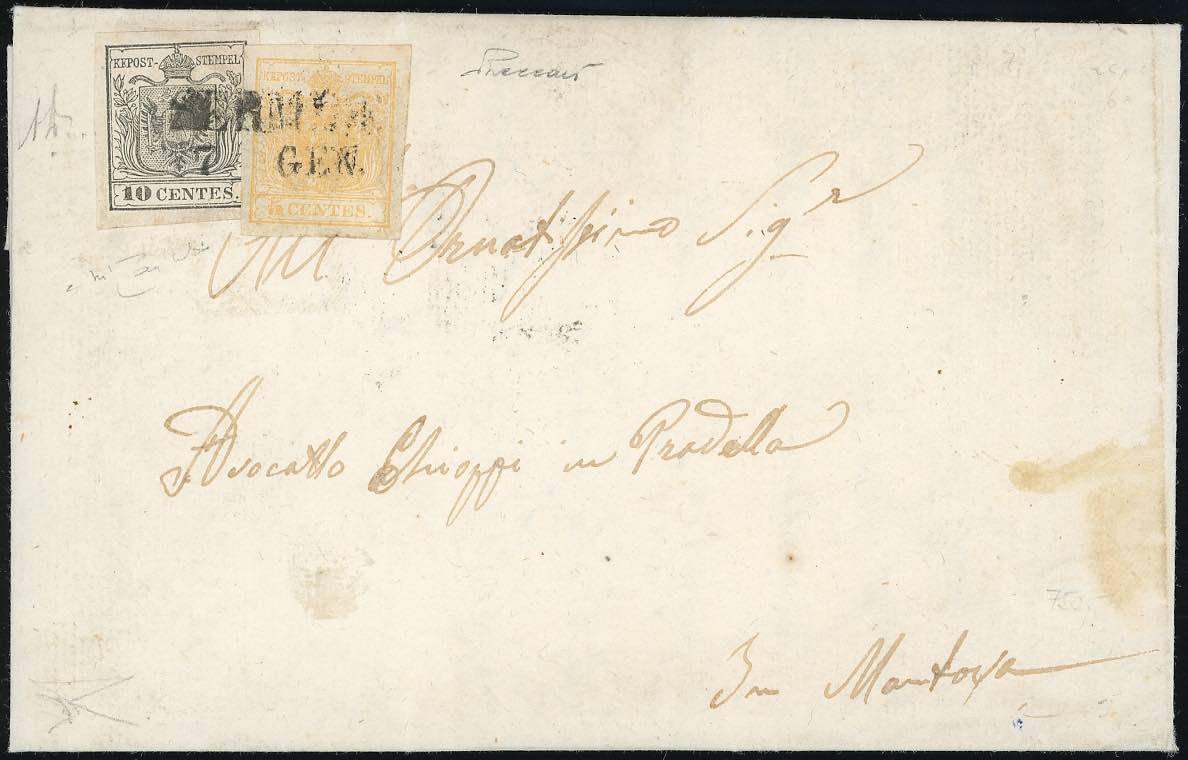 KKPOST-STEMPEL
10 CENTES.
KKPOST-STEMPEL
CENTES.
7 GEN.
All Ornatissimo Sigr
Avocatto Chioppi in Pradella
In Mantova
750